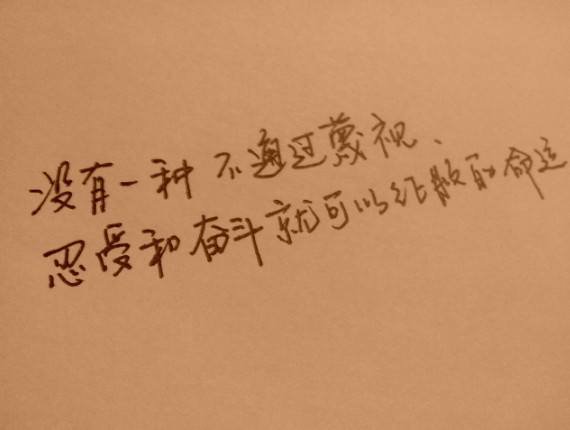 没有一种不通过蔑视、
忍受和奋斗就可以征服的命运